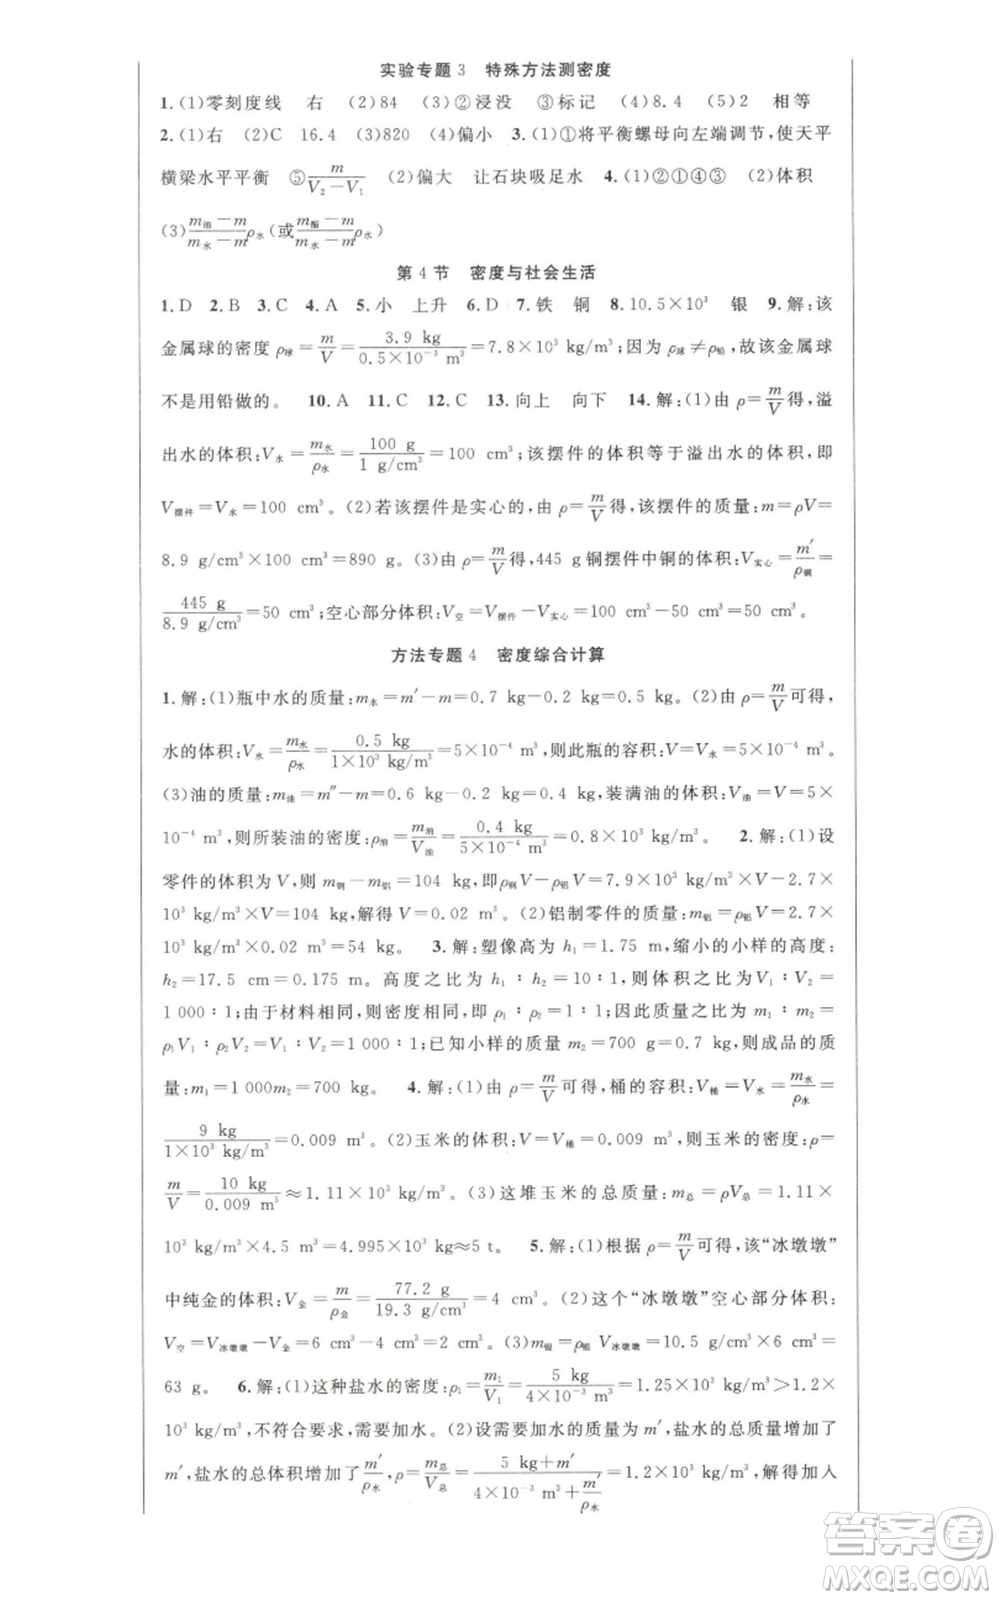 实验专题 3　特殊方法测密度
1.(1)零刻度线　右　(2)84　(3)②浸没　③标记　(4)8.4　(5)2　相等
2.(1)右　(2)C　16.4　(3)820　(4)偏小　3.(1)①将平衡螺母向左端调节,使天平
横梁水平平衡　⑤m/(V₂－V₁)　(2)偏大　让石块吸足水　4.(1)②①④③　(2)体积
(3)(m油－m)/(m水－m)ρ水(或(m酯－m)/(m水－m)ρ水)
第 4 节　密度与社会生活
1.D　2.B　3.C　4.A　5.小　上升　6.D　7.铁　铜　8.10.5×10³　银　9.解:该
金属球的密度 ρ球＝m/V＝3.9 kg/(0.5×10⁻³ m³)＝7.8×10³ kg/m³;因为 ρ球≠ρ铅,故该金属球
不是用铅做的。　10.A　11.C　12.C　13.向上　向下　14.解:(1)由 ρ＝m/V得,溢
出水的体积:V水＝m水/ρ水＝100 g/(1 g/cm³)＝100 cm³;该摆件的体积等于溢出水的体积,即
V摆件＝V水＝100 cm³。(2)若该摆件是实心的,由 ρ＝m/V得,该摆件的质量:m＝ρV＝
8.9 g/cm³×100 cm³＝890 g。(3)由 ρ＝m/V得,445 g铜摆件中铜的体积:V实心＝m′/ρ铜＝
445 g/(8.9 g/cm³)＝50 cm³;空心部分体积:V空＝V摆件－V实心＝100 cm³－50 cm³＝50 cm³。
方法专题 4　密度综合计算
1.解:(1)瓶中水的质量:m水＝m′－m＝0.7 kg－0.2 kg＝0.5 kg。(2)由 ρ＝m/V可得,
水的体积:V水＝m水/ρ水＝0.5 kg/(1×10³ kg/m³)＝5×10⁻⁴ m³,则此瓶的容积:V＝V水＝5×10⁻⁴ m³。
(3)油的质量:m油＝m″－m＝0.6 kg－0.2 kg＝0.4 kg,装满油的体积:V油＝V＝5×
10⁻⁴ m³,则所装油的密度:ρ油＝m油/V油＝0.4 kg/(5×10⁻⁴ m³)＝0.8×10³ kg/m³。　2.解:(1)设
零件的体积为 V,则 m钢－m铝＝104 kg,即ρ钢V－ρ铝V＝7.9×10³ kg/m³×V－2.7×
10³ kg/m³×V＝104 kg,解得 V＝0.02 m³。(2)铝制零件的质量:m铝＝ρ铝V＝2.7×
10³ kg/m³×0.02 m³＝54 kg。　3.解:塑像高为 h₁＝1.75 m,缩小的小样的高度:
h₂＝17.5 cm＝0.175 m。高度之比为 h₁∶h₂＝10∶1,则体积之比为 V₁∶V₂＝
1 000∶1;由于材料相同,则密度相同,即 ρ₁∶ρ₂＝1∶1,所以质量之比为 m₁∶m₂＝
ρ₁V₁∶ρ₂V₂＝1 000∶1;已知小样的质量 m₂＝700 g＝0.7 kg,则成品的质
量:m₁＝1 000m₂＝700 kg。　4.解:(1)由 ρ＝m/V可得,桶的容积:V桶＝V水＝m水/ρ水＝
9 kg/(1×10³ kg/m³)＝0.009 m³。(2)玉米的体积:V＝V桶＝0.009 m³,则玉米的密度:ρ＝
m/V＝10 kg/(0.009 m³)≈1.11×10³ kg/m³。(3)这堆玉米的总质量:m总＝ρV总＝1.11×
10³ kg/m³×4.5 m³＝4.995×10³ kg≈5 t。　5.解:(1)根据 ρ＝m/V可得,该“冰墩墩”
中纯金的体积:V金＝m/ρ金＝77.2 g/(19.3 g/cm³)＝4 cm³。(2)这个“冰墩墩”空心部分体积:
V空＝V冰墩墩－V金＝6 cm³－4 cm³＝2 cm³。(3)m银＝ρ银 V冰墩墩＝10.5 g/cm³×6 cm³＝
63 g。　6.解:(1)这种盐水的密度:ρ₁＝m₁/V₁＝5 kg/(4×10⁻³ m³)＝1.25×10³ kg/m³＞1.2×
10³ kg/m³,不符合要求,需要加水。(2)设需要加水的质量为 m′,盐水的总质量增加了
m′,盐水的总体积增加了m′/ρ水,ρ＝m总/V总＝(5 kg＋m′)/(4×10⁻³ m³＋m′/ρ水)＝1.2×10³ kg/m³,解得加入
答案圈
MXQE.COM